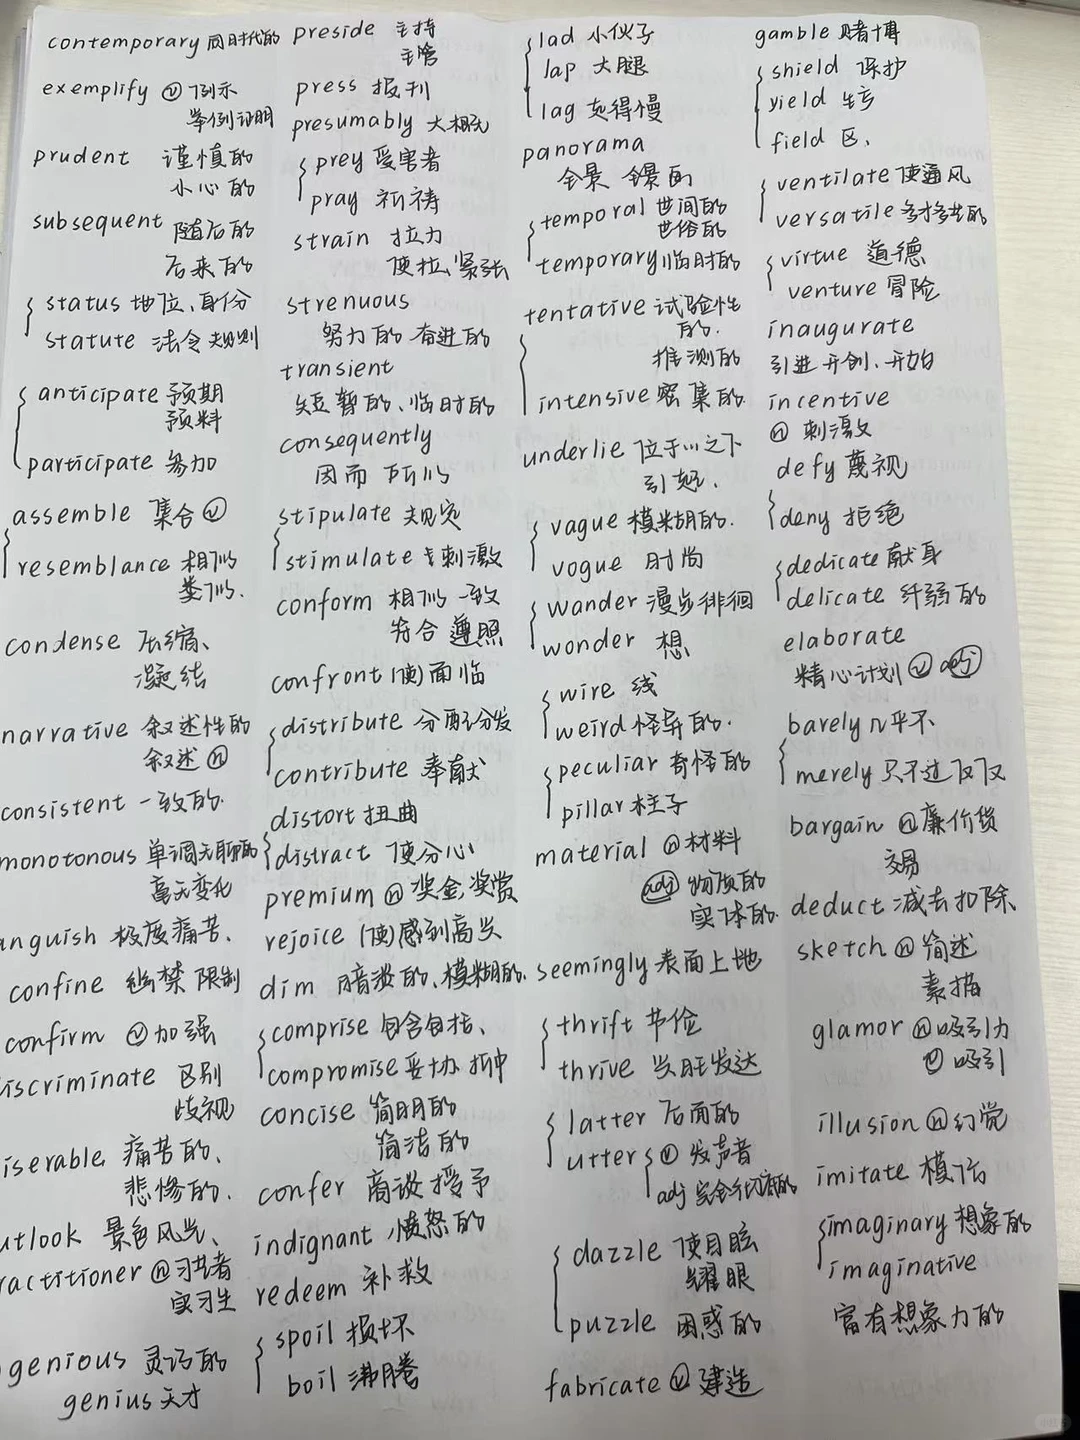 contemporary 同时代的
exemplify ⓥ 例示
举例证明
prudent 谨慎的
小心的
subsequent 随后的
后来的
status 地位、身份
statute 法令 规则
anticipate 预期
预料
participate 参加
assemble 集合 ⓥ
resemblance 相似
类似、
condense 压缩、
凝结
narrative 叙述性的
叙述 ⓝ
consistent 一致的
monotonous 单调无聊的
毫无变化
anguish 极度痛苦、
confine 监禁 限制
confirm ⓥ 加强
iscriminate 区别
歧视
iserable 痛苦的、
悲惨的、
utlook 景色风光、
ractitioner ⓝ 习艺者
实习生
genious 灵巧的
genius 天才
preside 主持
主管
press 报刊
presumably 大概
prey 受害者
pray 祈祷
strain 拉力
使拉、紧张
strenuous
努力的 奋进的
transient
短暂的、临时的
consequently
因而 所以
stipulate 规定
stimulate 刺激
conform 相似 一致
符合 遵照
confront (使)面临
distribute 分配分发
contribute 奉献
distort 扭曲
distract 使分心
premium ⓝ 奖金,奖赏
rejoice (使)感到高兴
dim 暗淡的、模糊的.
comprise 包含包括、
compromise 妥协 折中
concise 简明的
简洁的
confer 商谈 授予
indignant 愤怒的
redeem 补救
spoil 损坏
boil 沸腾
lad 小伙子
lap 大腿
lag 走得慢
panorama
全景 全景画
temporal 世间的
世俗的
temporary 临时的
tentative 试验性
的.
推测的
intensive 密集的
underlie 位于…之下
引起、
vague 模糊的.
vogue 时尚
wander 漫步徘徊
wonder 想
wire 线
weird 怪异的.
peculiar 奇怪的
pillar 柱子
material ⓝ 材料
adj 物质的
实体的.
seemingly 表面上地
thrift 节俭
thrive 兴旺发达
latter 后面的
utter ⓥ 发声音
adj 完全彻底的
dazzle 使目眩
耀眼
puzzle 困惑的
fabricate ⓥ 建造
gamble 赌博
shield 保护
yield 生亏
field 区、
ventilate 使通风
versatile 多才多艺的
virtue 道德
venture 冒险
inaugurate
引进 开创、开始
incentive
ⓝ 刺激
defy 蔑视
deny 拒绝
dedicate 献身
delicate 纤弱的
elaborate
精心计划 ⓥ adj
barely 几乎不
merely 只不过 仅仅
bargain ⓝ 廉价货
交易
deduct 减去扣除
sketch ⓝ 简述
素描
glamor ⓝ 吸引力
ⓥ 吸引
illusion ⓝ 幻觉
imitate 模仿
imaginary 想象的
imaginative
富有想象力的